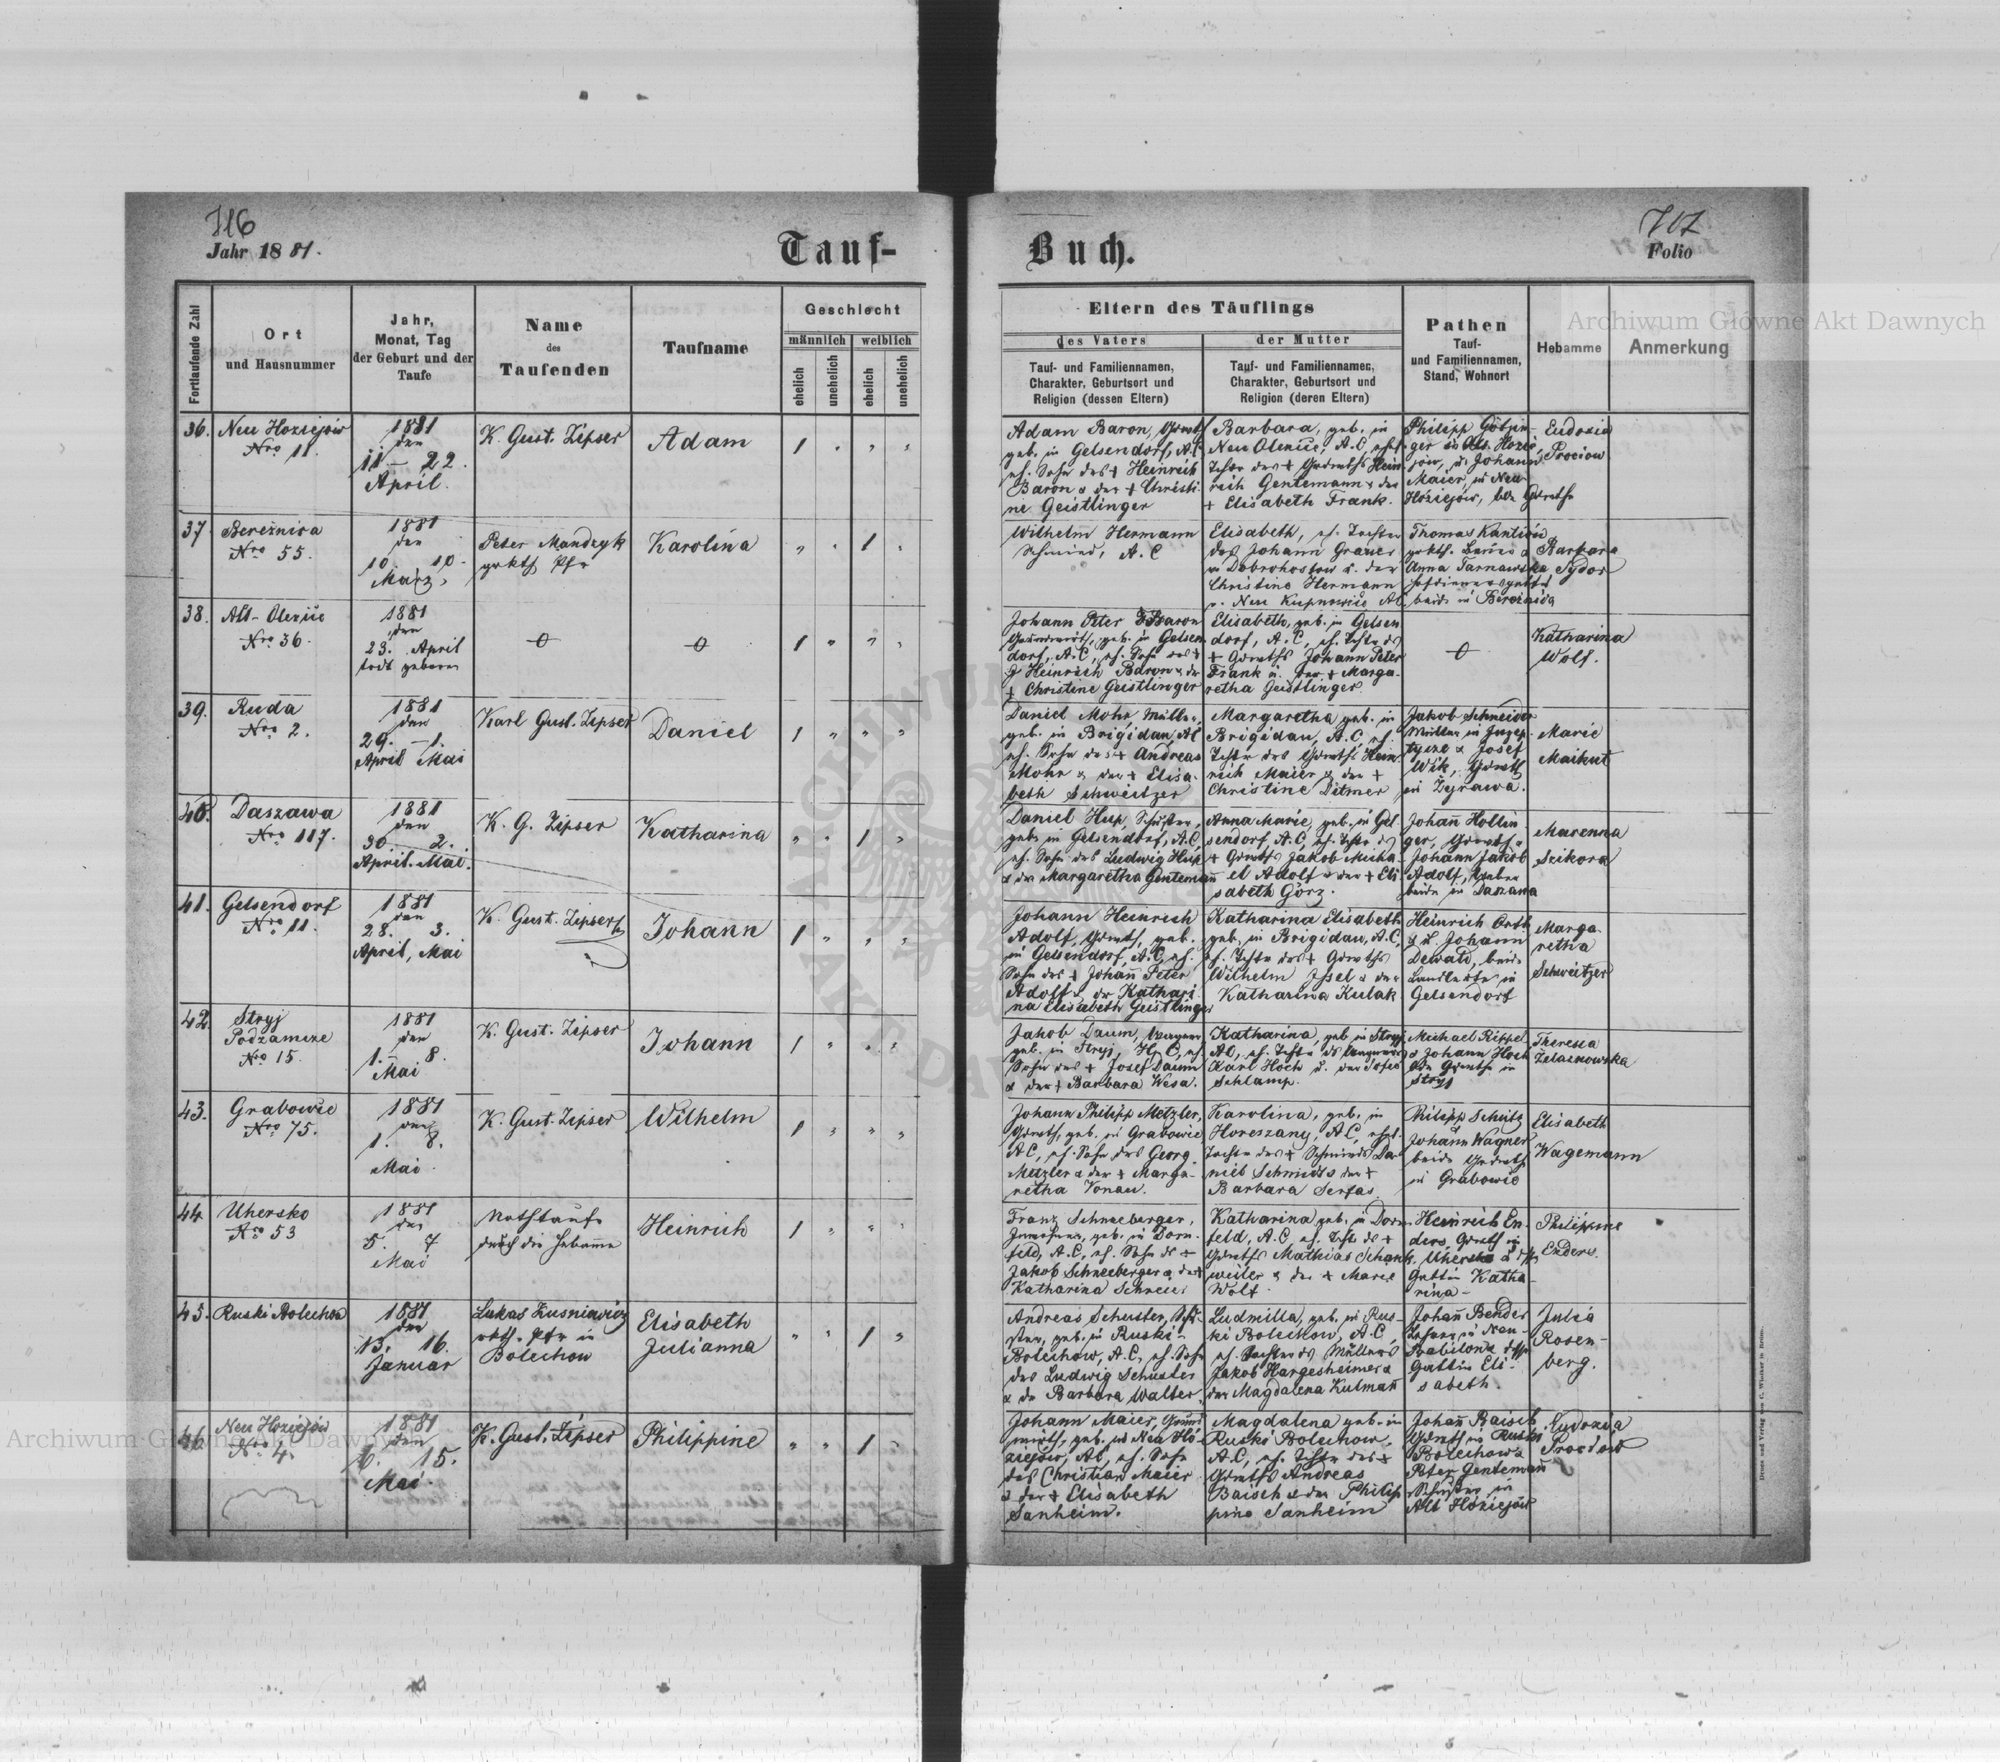 716
Jahr 1881.
Tauf-
Fortlaufende Zahl
Ort
und Hausnummer
Jahr,
Monat, Tag
der Geburt und der
Taufe
Name
des
Taufenden
Taufname
Geschlecht
männlich
weiblich
ehelich
unehelich
ehelich
unehelich
36.
Neu Hoziejów
Nro 11.
1881
den
11 – 22.
April.
K. Gust. Zipser
Adam
1
37.
Bereżnica
Nro 55.
1881
den
10. 10.
März.
Peter Mandzyk
Karolina
1
38.
Alt-Olexiie
Nro 36.
1881
den
23. April
todt geboren
1
39.
Ruda
Nro 2.
1881
den
29. – 1.
April Mai
Karl Gust. Zipser
Daniel
1
40.
Daszawa
Nro 117.
1881
den
30. 2.
April. Mai.
K. G. Zipser
Katharina
1
41.
Gelsendorf
Nro 11.
1881
den
28. 3.
April, Mai
K. Gust. Zipser
Johann
1
42.
Stryj
Podzamcze
Nro 15.
1881
den
1. – 8.
Mai
K. Gust. Zipser
Johann
1
43.
Grabowce
Nro 75.
1881
den
1. 8.
Mai
K. Gust. Zipser
Wilhelm
1
44
Uhersko
Nro 53
1881
den
5. 7
Mai
Nothtaufe
durch die Hebamme
Heinrich
1
45.
Ruski Bolechow
1881
den
13. 16.
Januar
Lukas Zusniewicz
in
Bolechow
Elisabeth
Julianna
1
46.
Neu Hoziejów
Nro 4.
1881
den
6. 15.
Mai
K. Gust. Zipser
Philippine
1
717
Folio
Buch.
Eltern des Täuflings
des Vaters
der Mutter
Tauf- und Familiennamen,
Charakter, Geburtsort und
Religion (dessen Eltern)
Tauf- und Familiennamen,
Charakter, Geburtsort und
Religion (deren Eltern)
Pathen
Tauf-
und Familiennamen,
Stand, Wohnort
Hebamme
Anmerkung
Adam Baron,
geb. in Gelsendorf, A.C.
eh. Sohn des + Heinrich
Baron & der + Christi-
ne Geistlinger
Barbara, geb. in
Neu Olexiie, A.C.,
Tochter des + Hein-
rich Gentemann & der
+ Elisabeth Frank.
Philipp
Johann
Maier, in Neu-
Hoziejów,
Eudoxia
Prociow
Wilhelm Hermann
Schmied, A.C
Elisabeth, eh. Tochter
des Johann Grauer
Dobrohostow u. der
Christine Hermann
Thomas
Anna Tarnawska
beide in Bereżnica
Barbara
Sydor
Johann Peter Baron
Grundwirth, geb. in Gelsen-
dorf, A.C., eh. Sohn des +
Heinrich Baron & der
+ Christine Geistlinger
Elisabeth, geb. in Gelsen
dorf, A.C., eh. Tochter des
+ Johann Peter
Frank u. der + Marga-
retha Geistlinger
Katharina
Wolf.
Daniel Mohr, Müller,
geb. in Brigidau, AC
eh. Sohn des + Andreas
Mohr & der + Elisa-
beth Schweitzer
Margaretha geb. in
Brigidau, A.C, eh.
Tochter des Hein-
rich Maier & der +
Christine Ditmer
Jakob Schneider
Müller in
& Josef
Wik,
in Zyrawa.
Marie
Maikut
Daniel Hup, Schuster,
geb. in Gelsendorf, A.C,
eh. Sohn des Ludwig Hup
& der Margaretha Gentemann
Anna Marie, geb. in Gel-
sendorf, A.C, eh. Tochter des
+ Jakob Micha-
el Adolf & der + Eli
sabeth Görz.
Johann Hollin
ger,
Johann Jakob
Adolf,
beide in Daszawa
Marenna
Szikora
Johann Heinrich
Adolf, geb.
in Gelsendorf, A.C, eh.
Sohn des + Johann Peter
Adolf & der Kathari-
na Elisabeth Geistlinger
Katharina Elisabeth
geb. in Brigidau, A.C,
eh. Tochter des +
Wilhelm Issel & der
Katharina Kulak
Heinrich Orth
& Johann
Dewald, beide
Landleute in
Gelsendorf
Marga-
retha
Schweitzer
Jakob Daum,
geb. in Stryj, H.C, eh.
Sohn des + Josef Daum
& der + Barbara Wesa.
Katharina, geb. in Stryj
AC, eh. Tochter des
Karl Hoch u. der
Schlamp.
Michael Rippel
& Johann Hoch
in
Stryj
Theresia
Zelasnowska
Johann Philipp Metzler,
geb. in Grabowce
A.C, eh. Sohn des Georg
Metzler & der + Marga-
retha Vonau.
Karolina, geb. in
Horeszany, A.C,
Tochter des + Schmieds Da-
niel Schmidt & der +
Barbara Serfas
Philipp Schütz
&
Johann Wagner
beide
in Grabowce
Elisabeth
Wagemann
Franz Schneeberger,
geb. in Dorn-
feld, A.C, eh. Sohn des +
Jakob Schneeberger & der +
Katharina Schreier
Katharina geb. in Dorn-
feld, A.C, eh. Tochter des +
Mathias Schank-
weiler & der + Marie
Wolf
Heinrich En-
ders, in
Uhersko &
Gattin Katha-
rina
Philippine
Enders.
Andreas Schuster,
geb. in Ruski-
Bolechow, A.C, eh. Sohn
des Ludwig Schuster
& der Barbara Walter
Ludmilla, geb. in Rus-
ki Bolechow, A.C
eh. Tochter des Müllers
Jakob Hargesheimer &
der Magdalena Kulmann
Johann Bender
Neu-
Babilon &
Gattin Eli-
sabeth.
Julia
Rosen-
berg.
Johann Maier, Grund-
wirth, geb. in Neu Ho-
ziejów, AC, eh. Sohn
des Christian Maier
& der + Elisabeth
Sanheim.
Magdalena geb. in
Ruski Bolechow,
A.C, eh. Tochter des +
Andreas
Baisch & der Philip
pine Sanheim
Johann Baisch
in Ruski
Bolechow &
Peter Gentemann
Schuster in
Alt Hoziejów
Eudoxia
Prociów
Archiwum Główne Akt Dawnych
Archiwum Główne Akt Dawnych